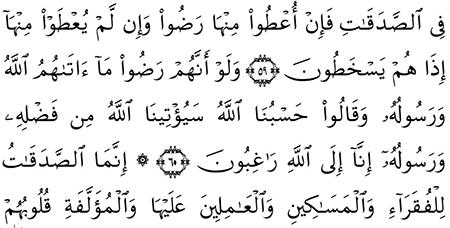 فِي ٱلصَّدَقَٰتِ فَإِنۡ أُعۡطُواْ مِنۡهَا رَضُواْ وَإِن لَّمۡ يُعۡطَوۡاْ مِنۡهَآ
إِذَا هُمۡ يَسۡخَطُونَ ۝٥٩ وَلَوۡ أَنَّهُمۡ رَضُواْ مَآ ءَاتَىٰهُمُ ٱللَّهُ
وَرَسُولُهُۥ وَقَالُواْ حَسۡبُنَا ٱللَّهُ سَيُؤۡتِينَا ٱللَّهُ مِن فَضۡلِهِۦ
وَرَسُولُهُۥٓ إِنَّآ إِلَى ٱللَّهِ رَٰغِبُونَ ۝٦٠ ۞ إِنَّمَا ٱلصَّدَقَٰتُ
لِلۡفُقَرَآءِ وَٱلۡمَسَٰكِينِ وَٱلۡعَٰمِلِينَ عَلَيۡهَا وَٱلۡمُؤَلَّفَةِ قُلُوبُهُمۡ